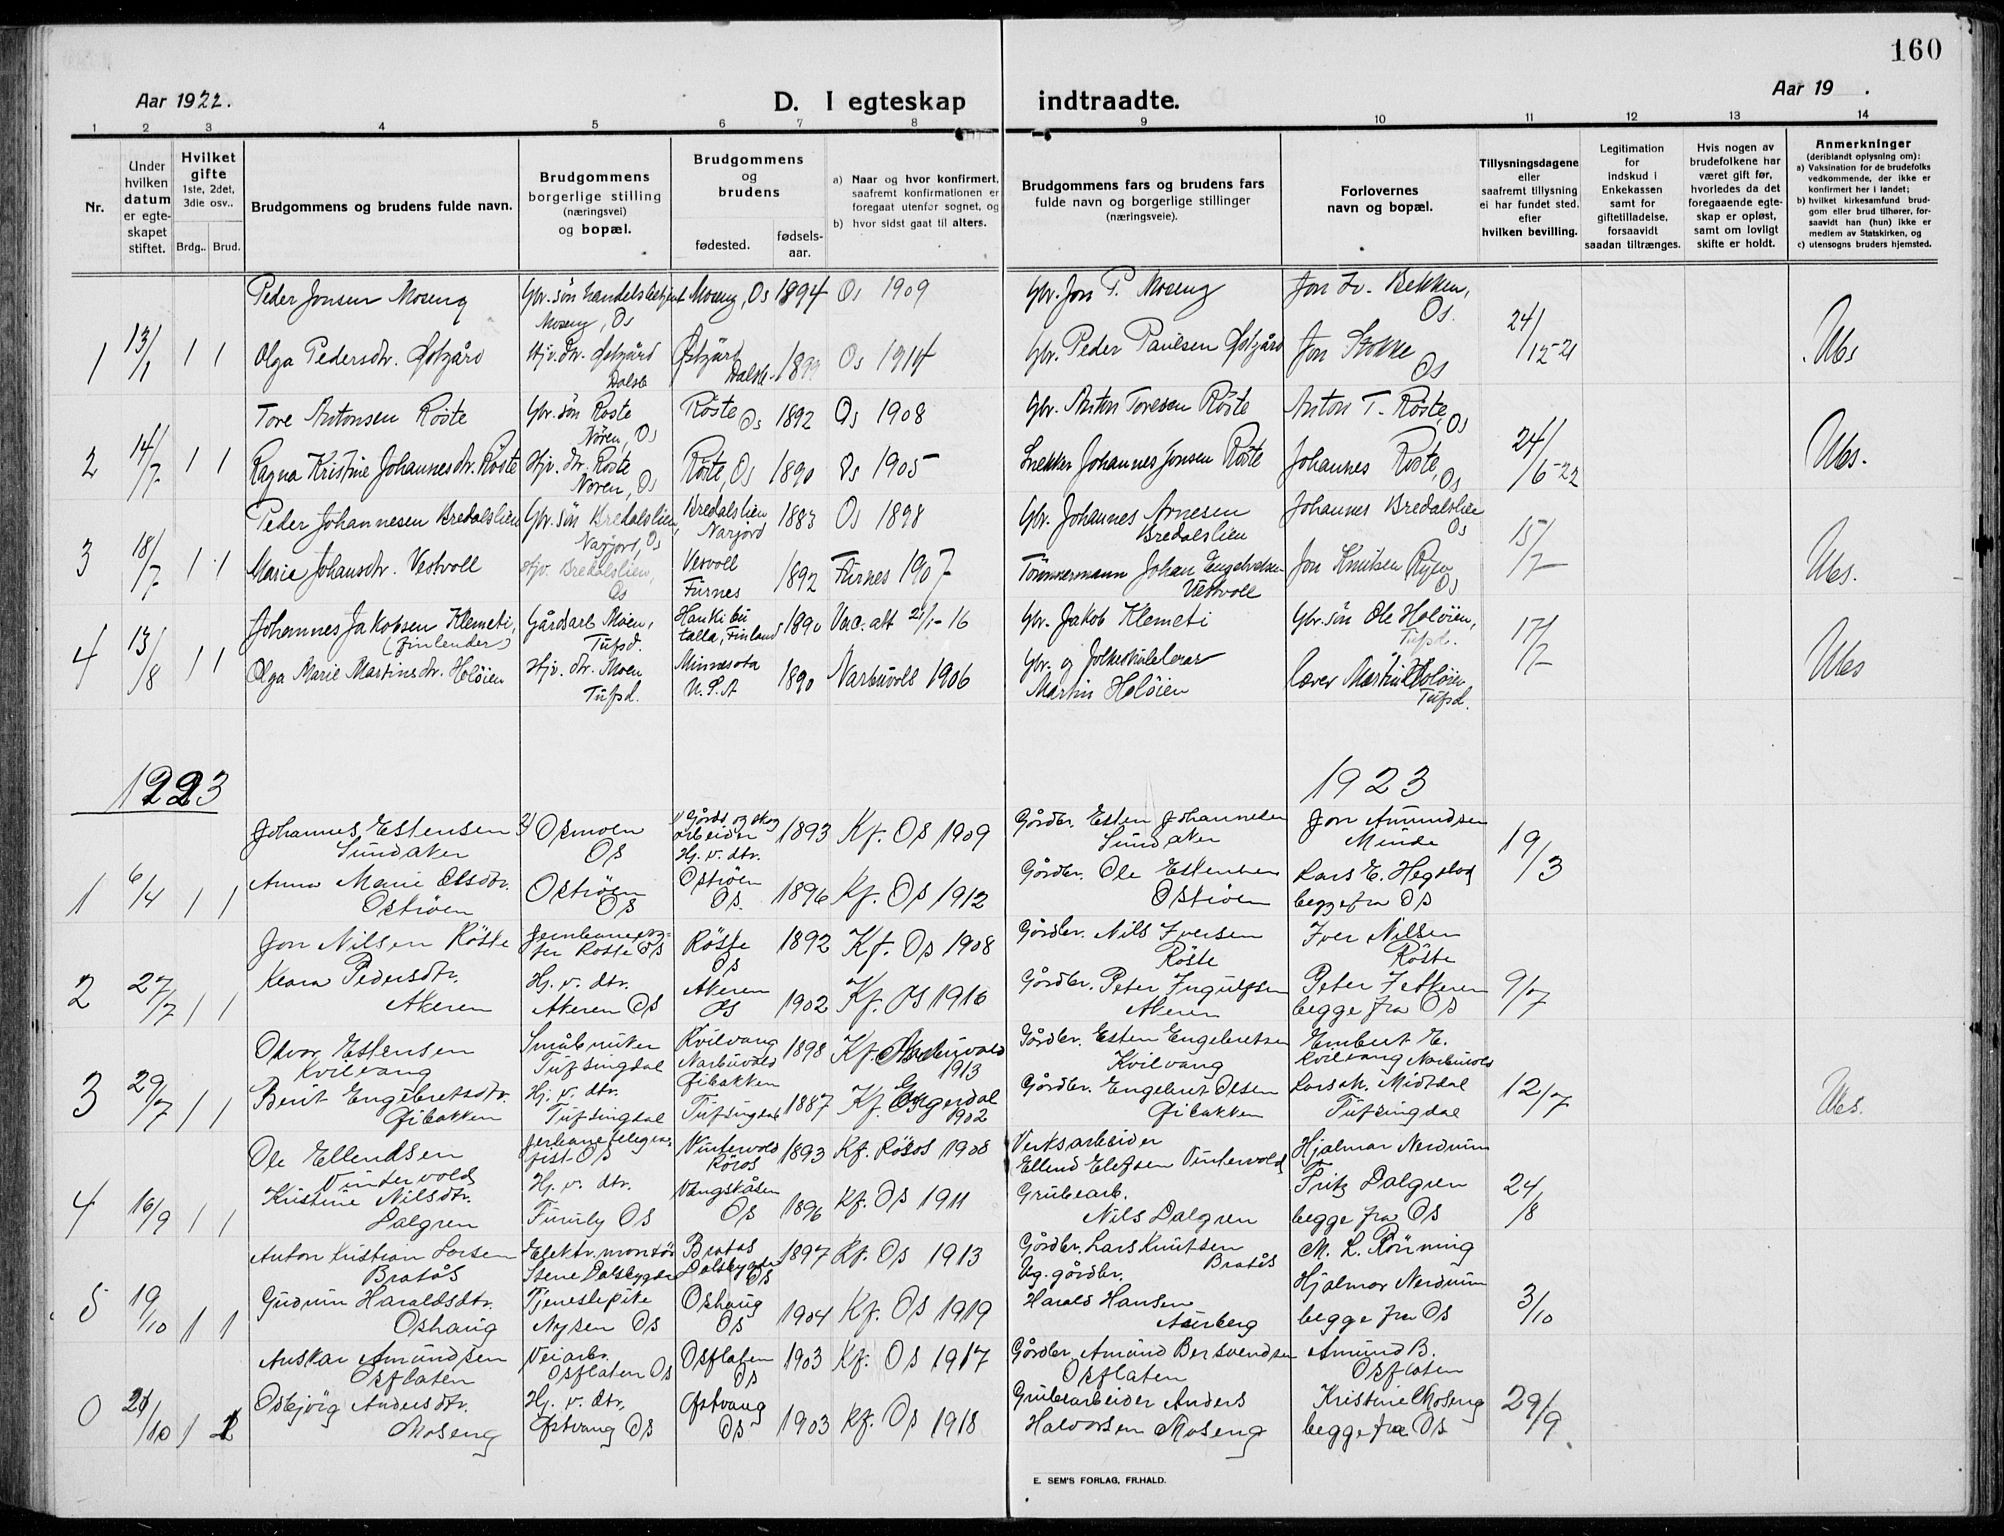 160
Aar 1922.
D. I egteskap indtraadte.
Aar 19 .
1 2 3 4 5 6 7 8 9 10 11 12 13 14
Nr.
Under hvilken datum er egteskapet stiftet.
Hvilket gifte
1ste, 2det, 3die osv..
Brdg.. Brud.
Brudgommens og brudens fulde navn.
Brudgommens borgerlige stilling (næringsvei) og bopæl.
Brudgommens og brudens
fødested. fødselsaar.
a) Naar og hvor konfirmert, saafremt konfirmationen er foregaat utenfor sognet, og
b) hvor sidst gaat til alters.
Brudgommens fars og brudens fars fulde navn og borgerlige stillinger (næringsveie).
Forlovernes navn og bopæl.
Tillysningsdagene eller saafremt tillysning ei har fundet sted. efter hvilken bevilling.
Legitimation for indskud i Enkekassen samt for giftetilladelse, forsaavidt saadan tiltrænges.
Hvis nogen av brudefolkene har været gift før, hvorledes da det foregaaende egteskap er opløst, samt om lovligt skifte er holdt.
Anmerkninger
(deriblandt oplysning om):
a) Vaksination for de brudefolks vedkommende, der ikke er konfirmert her i landet;
b) hvilket kirkesamfund brudgom eller brud tilhører, forsaavidt han (hun) ikke er medlem av Statskirken, og
c) utensogns bruders hjemsted.
Peder Jonsen Moseng Gbr. søn handelsbetjent Moseng, Os Moseng, Os 1894 Os 1909 Gbr. Jon P. Moseng Jon Iv. Bekken, Os.
1 13/1 1 1 Olga Pedersdtr. Østgård Hjv. dtr. Østgård Dalsb Østgård Dalsb. Os 1914 Gbr. Peder Paulsen Østgård Jon Stokke Os 24/12-21
Tore Antonsen Røste Gbr. søn Røste Nøren, Os Røste Os 1892 Os 1908 Gbr. Anton Toresen Røste Anton T. Røste, Os
2 14/7 1 1 Ragna Kristine Johannesdtr. Røste Hjv. dtr. Røste Nøren, Os Røste, Os 1890 Os 1905 Snekker Johannes Jonsen Røste Johannes Røste, Os 24/6-22
Peder Johannesen Bredalslien Gbr. søn Bredalslien, Narjord, Os Bredalslien Narjord 1883 Os 1898 Gbr. Johannes Arnesen Bredalslien Johannes Bredalslien Os
3 18/7 1 1 Marie Johansdtr. Vestvoll Hjv. Bredalslien, Os Furnes 1892 Furnes 1907 Tømmermann Johan Vestvoll Jon Knutsen Ryen Os 15/7
Johannes Jakobsen Klemeti, (finlender) Gårdsarb Moen, Tufsd. Finland 1890 Vac. att 21/1-16 Gbr. Jakob Klemeti Gbr. søn Ole Holøien, Tufsd.
4 13/8 1 1 Olga Marie Martinsdtr. Holøien Hjv. dtr. Moen Tufsd. Minnesota U.S.A 1890 Narbuvols 1906 Gbr. og folkeskolelærer Martin Holøien lærer Martin Holøien Tufsd. 17/7
1923 1923
Johannes Estensen Sundaker 2) Osmoen Os 1) Gårds og skogarbeider 1893 Kf. Os 1909 Gårdbr. Esten Johannesen Sundaker Jon Amundsen Minde
1 6/4 1 1 Anna Marie Olsdtr. Ostrøen Ostrøen Os Hj. v. dtr. Ostrøen Os. 1896 Kf. Os 1912 Gårdbr. Ole Estensen Ostrøen Lars E. begge fra Os 19/3
Jon Nilsen Røste Røste Os Røste Os 1892 Kf. Os 1908 Gårdbr. Nils Iversen Røste Iver Nilsen Røste
2 27/7 1 1 Klara Pedersdtr. Akeren Hj. v. dtr. Akeren Os Akeren Os 1902 Kf. Os 1916 Gårdbr. Peter Ingulfsen Akeren Peter I Akeren begge fra Os 9/7
Olvar Estensen Kvilvang Småbruker Tufsingdal Kvilvang Narbuvold 1898 Kf. Narbuvold 1913 Gårdbr. Esten Engebretsen Kvilvang Embert E. Kvilvang Narbuvold
3 29/7 1 1 Berit Engebretsdtr. Øibakken Hj. v. dtr. Tufsingdal Øibakken Tufsingdal 1887 Kf. Engerdal 1902 Gårdbr. Engebret Olsen Øibakken Lars M. Midtdal Tufsingdal 12/7
Ole Ellendsen Vintervold Os Vintervold Røros 1893 Kf. Røros 1908 Verksarbeider Ellend Elefsen Vintervold Hjalmar Nerdrum
4 16/9 1 1 Kristine Nilsdtr. Dalgren Hj. v. dtr. Furuly Os Vangskåsen Os 1896 Kf. Os 1911 Grubearb. Nils Dalgren Fritz Dalgren begge fra Os 24/8
Anton Kristian Larsen Bratås Elektr. montør Stene Dalsbygda Bratås Dalsbygda Os 1897 Kf. Os 1913 Gårdbr. Lars Knutsen Bratås M. L. Rønning
5 19/10 1 1 Gudrun Haraldsdtr. Oshaug Tjenestepike Nysen Os Oshaug Os 1904 Kf. Os 1919 Ug. gårdbr. Harald Hansen Hjalmar Nerdrum begge fra Os 3/10
Anskar Amundsen Osflaten Veiarb. Osflaten Os Osflaten Os 1903 Kf. Os 1917 Gårdbr Amund Bersvendsen Osflaten Amund B. Osflaten
0 21/10 1 1 Osbjørg Andersdtr. Moseng Hj. v. dtr. Østvang Os Østvang Os 1903 Kf. Os 1918 Grubearbeider Anders Halvorsen Moseng Kristine Moseng begge fra Os 29/9
E. SEM'S FORLAG, FR.HALD.